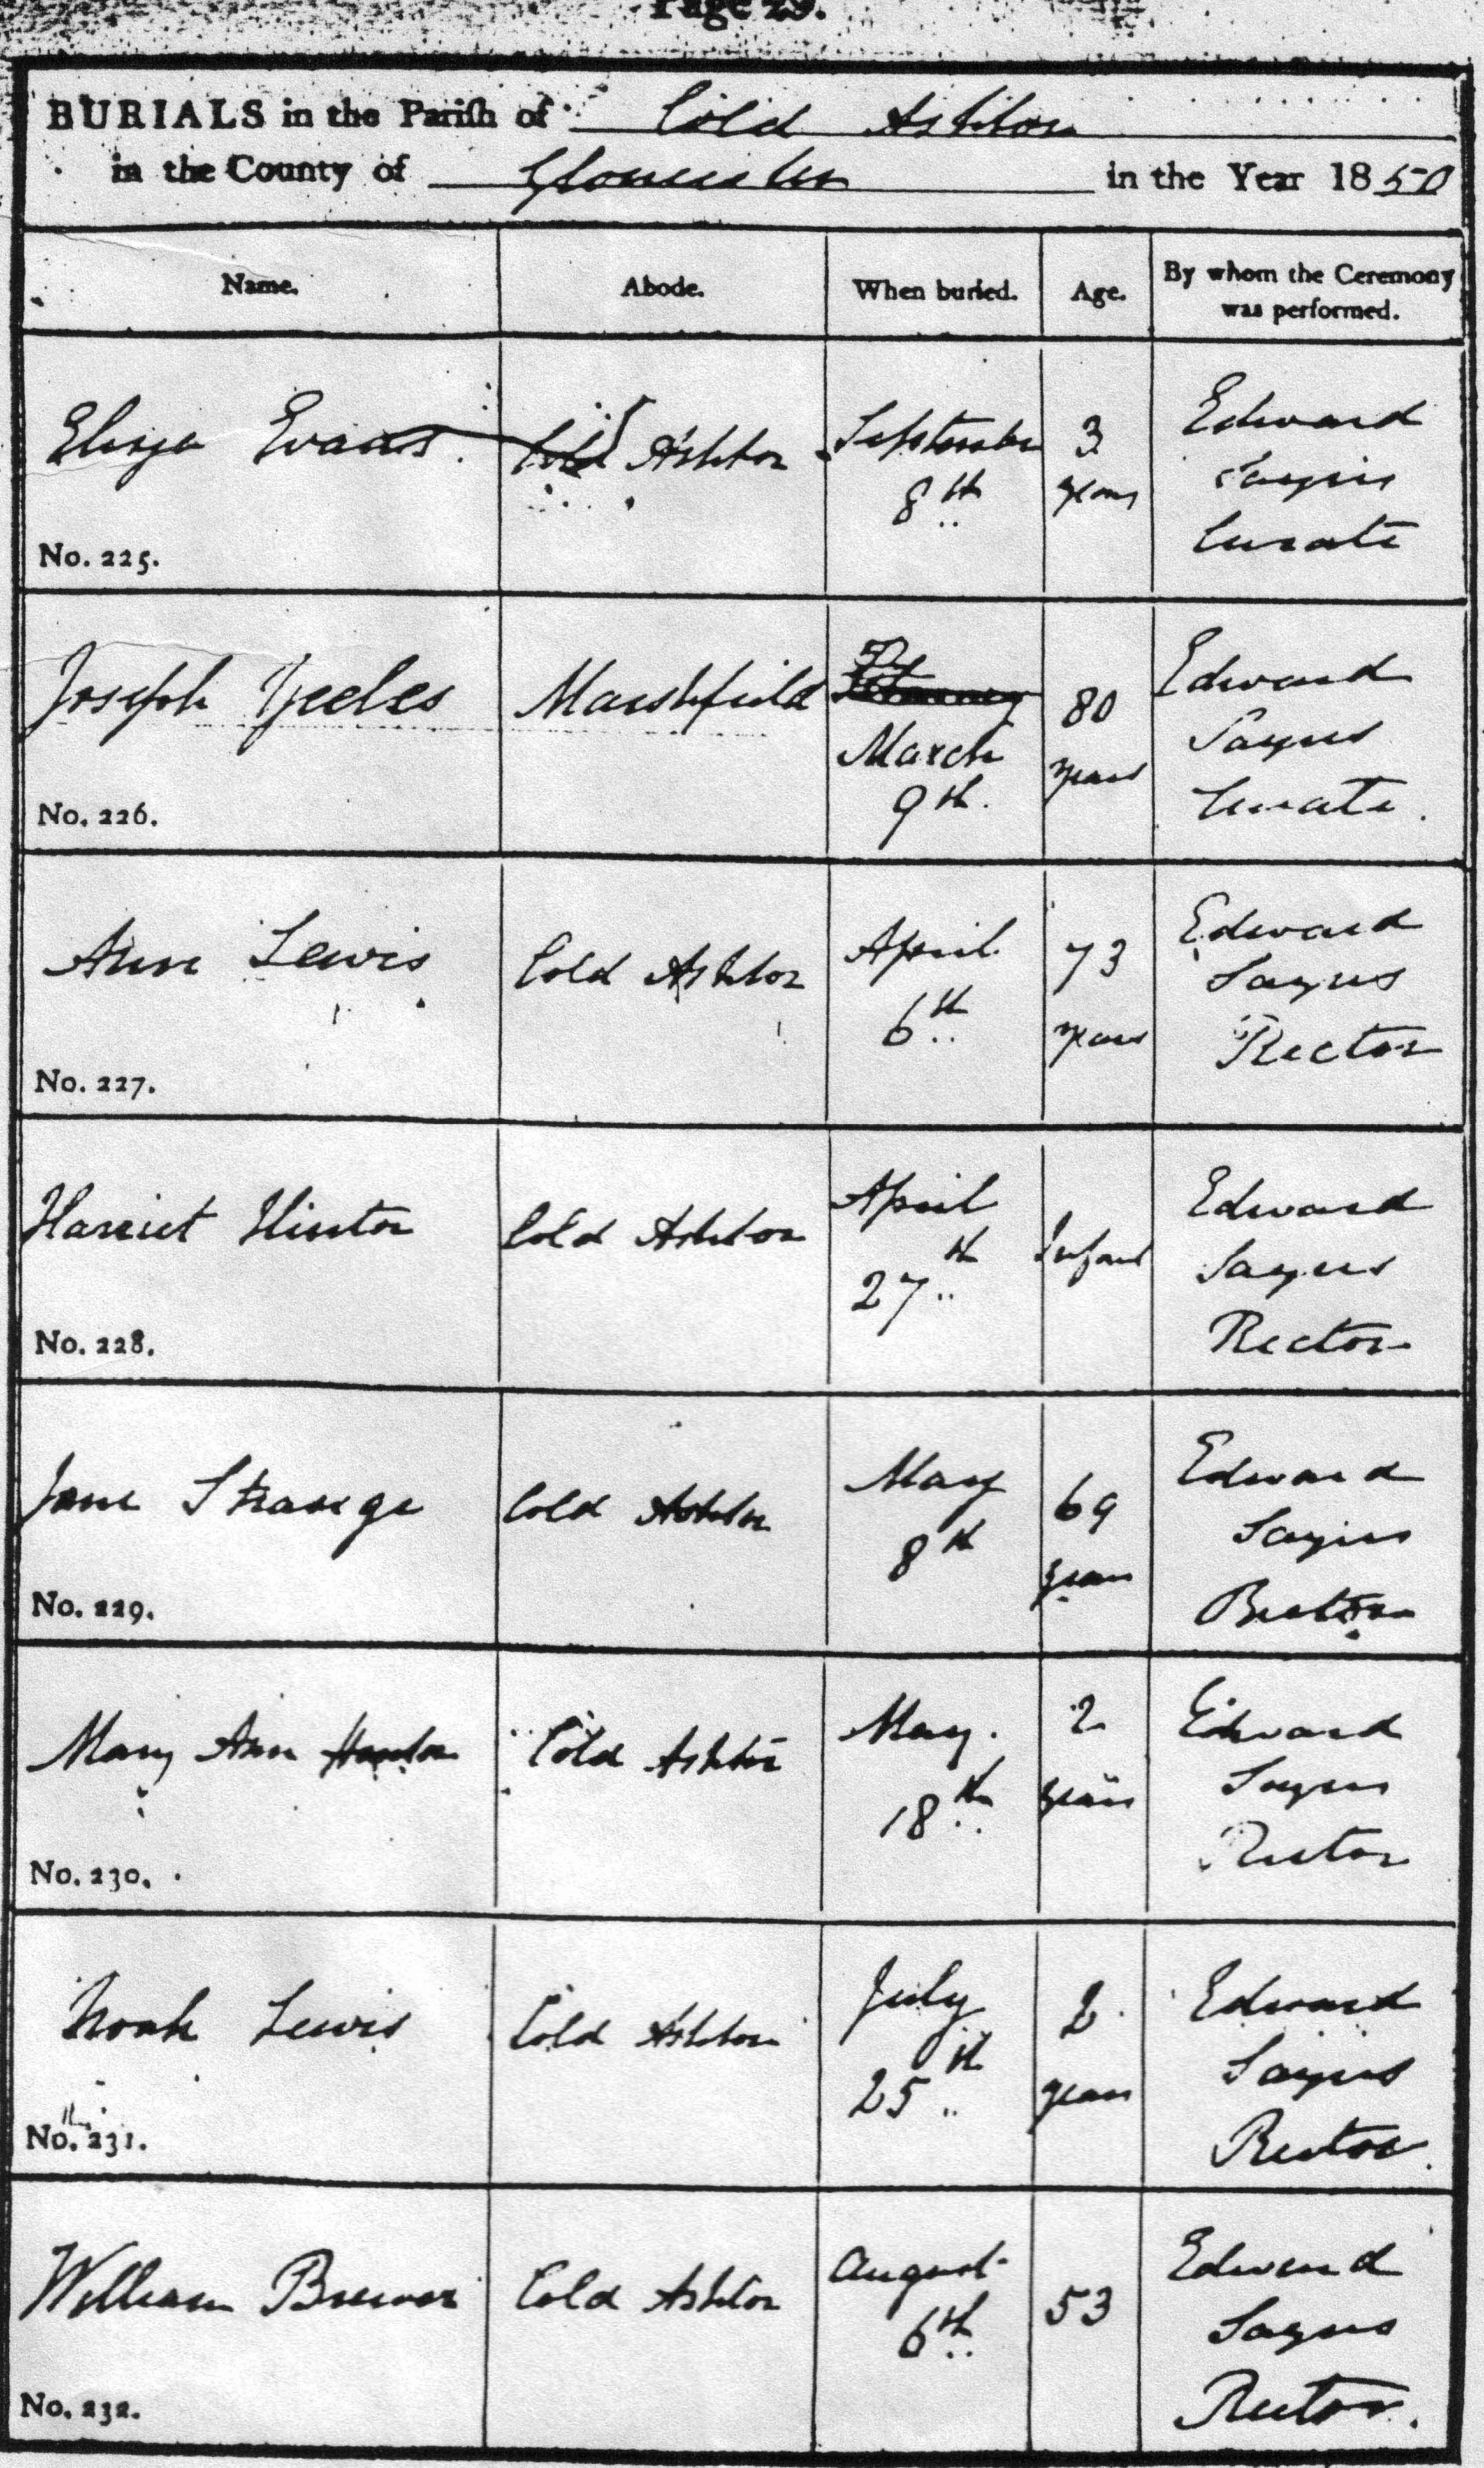 Page 29.
BURIALS in the Parish of Cold Ashton
in the County of Gloucester in the Year 1850
Name. Abode. When buried. Age. By whom the Ceremony
was performed.
Eliza Evans Cold Ashton September 3 Edward
8th years Sayres
Curate
No. 225.
50
Joseph Yeeles Marshfield 80 Edward
March years Sayres
9th. Curate.
No. 226.
Ann Lewis Cold Ashton April 73 Edward
6th years Sayres
Rector
No. 227.
Harriet Hinton Cold Ashton April Infant Edward
27th Sayres
Rector
No. 228.
Jane Strange Cold Ashton May 69 Edward
8th years Sayres
Rector
No. 229.
Mary Ann Cold Ashton May. 2 Edward
18th years Sayres
Rector
No. 230.
Noah Lewis Cold Ashton July 2 Edward
25th years Sayres
Rector.
No. 231.
William Brewer Cold Ashton August 53 Edward
6th Sayres
Rector.
No. 232.